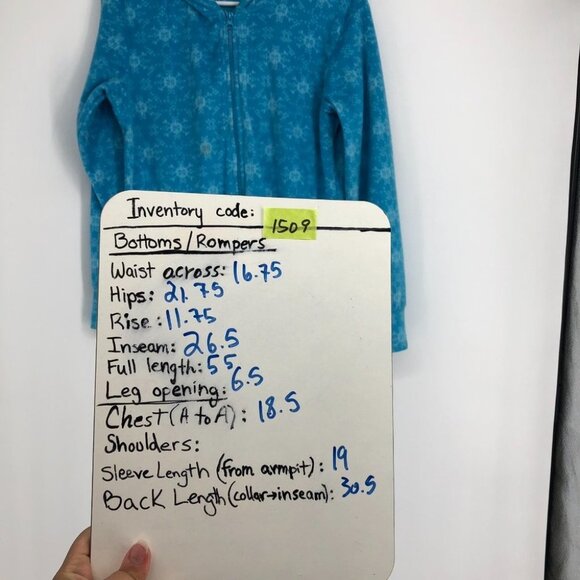 Inventory code: 1509
Bottoms/Rompers
Waist across: 16.75
Hips: 21.75
Rise: 11.75
Inseam: 26.5
Full length: 55
Leg opening: 6.5
Chest (A to A): 18.5
Shoulders:
Sleeve Length (from armpit): 19
Back Length (collar→inseam): 30.5